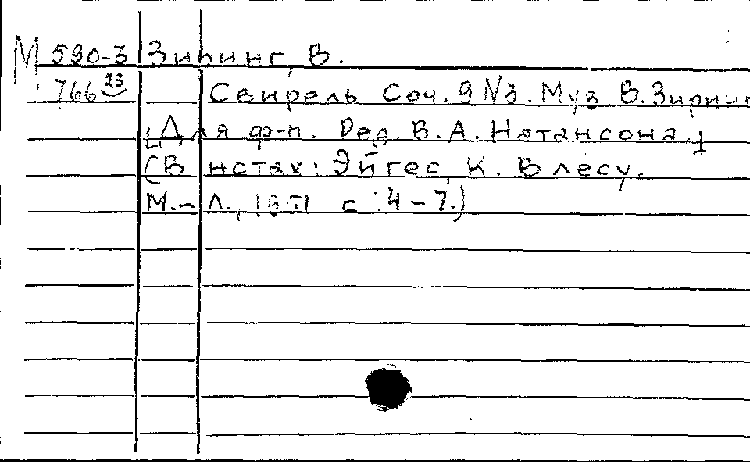 М 590-3 Зиринг, В.
766 23 Свирель Соч. 9 №3. Муз В. Зиринг
[Для ф-п. Ред. В. А. Натансона]
(В нотах: Эйгес, К. В лесу.
М.-Л., 1951 с. 4-7.)